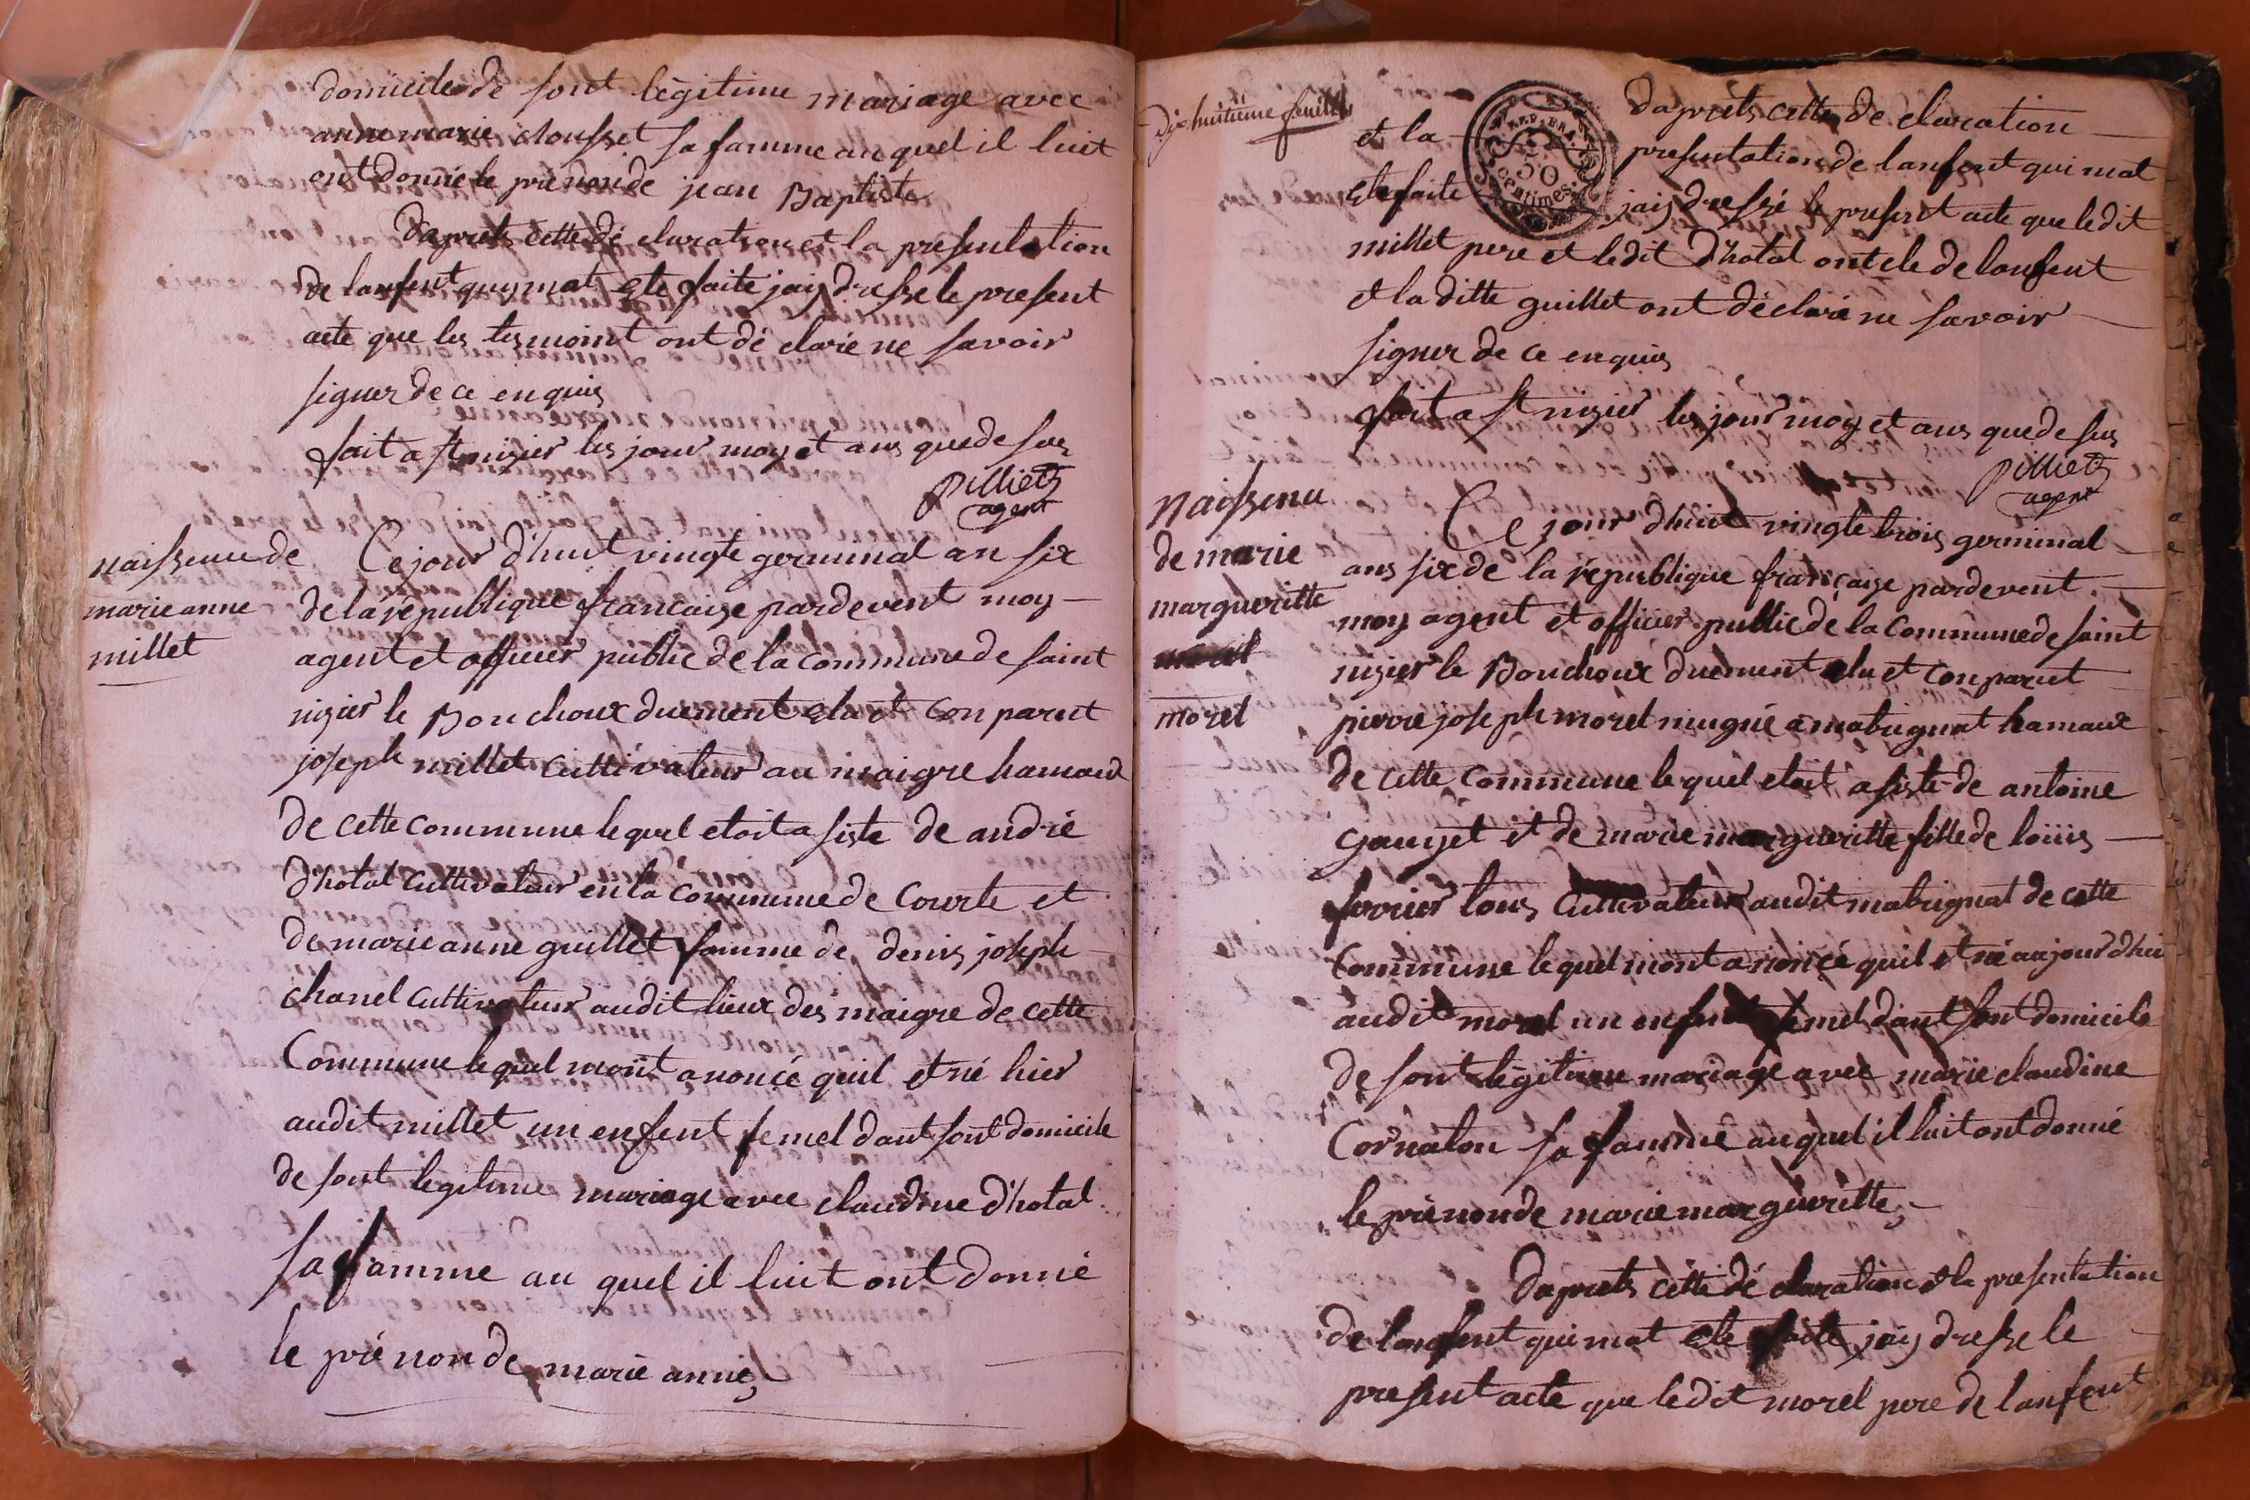 domicile de sont legitime mariage avec
anne marie clousset sa famme au quel il luit
ont donné le prenon de jean Baptiste
Daprets cette dé claration et la presentation
de lanfent quy mat ete faite jaij dresse le present
acte que les tesmoint ont dé claré ne savoir
signer de ce enquis
fait a st nizier les jour moy et ans que de sus
pilliets
agent
naissence de
marie anne
millet
Ce jour d'huit vingte germinal an six
de la république francaize pardevent moy
agent et officier public de la commune de saint
nizier le Bouchoux duement elu et conparut
joseph millet cultivateur au maigre hamaux
de cette commune lequel etoit a siste de andré
d'hotal cultivateur en la commune de Courte et
de marie anne guillet famme de denis joseph
chanel cultivateur audit lieux des maigre de cette
Commune lequel mont anoncé quil et né hier
audit millet un enfent femel dant sont domicile
de sont legitime mariage avec claudine d'hotal
sa famme au quel il luit ont donné
le prénon de marie anne
Dix huitieme feuille
et la
ete faite
REP. FRA.
50
centimes
daprets cette de claration
presentation de lanfent qui mat
jaij dressé le present acte que ledit
millet pere et ledit D'hotal oncle de lanfent
et la ditte guillet ont déclaré ne savoir
signer de ce enquis
fait a st nizier les jour moy et ans que de sus
pilliets
agent
naissence
de marie
margueritte
morel
Ce jour d'huit vingte trois germinal
ans six de la république françaize pardevent
moy agent et officier public de la commune de saint
nizier le Bouchoux duement elu et conparut
pierre joseph morel mugnié a mabrignat hamaux
de cette commune le quel etoit a siste de antoine
gauget et de marie margueritte fille de loüis
fevrier tous cultivateur audit mabrignat de cette
Commune lequel mont anoncé quil et né aujourd'hui
audit morel un enfent femel dant sont domicile
de sont légitime mariage avec marie claudine
Cornaton sa famme auquel il luit ont donné
le prénon de marie margueritte
Daprets cette dé claration et la presentation
de lanfent qui mat ete faite jaij dresse le
present acte que ledit morel pere de lanfent